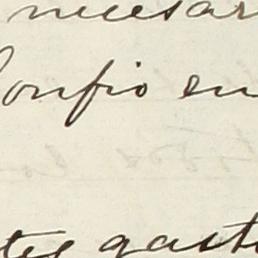 necesar
Confio en
tes gast